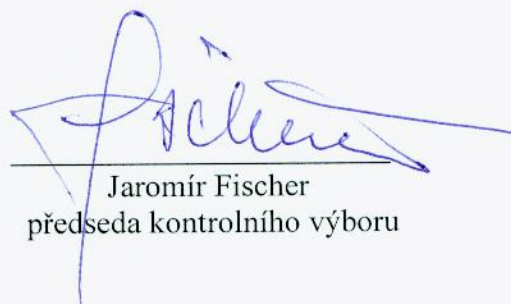 Jaromír Fischer
předseda kontrolního výboru